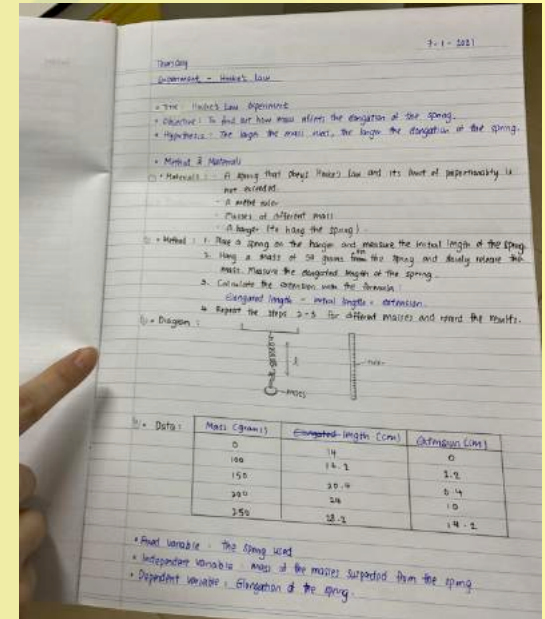 7-1-2021
Thursday
Experiment - Hooke's Law
• Title: Hooke's Law Experiment
• Objective: To find out how mass affects the elongation of the spring.
• Hypothesis: The larger the mass used, the larger the elongation of the spring.
• Method & Materials
• Materials: - A spring that obeys Hooke's law and its limit of proportionality is
not exceeded.
- A metre ruler
- Masses of different mass
- A hanger (to hang the spring)
• Method: 1. Place a spring on the hanger and measure the initial length of the spring.
2. Hang a mass of 50 grams from the spring and slowly release the
mass. Measure the elongated length of the spring.
3. Calculate the extension with the formula:
Elongated length - initial length = extension.
4. Repeat the steps 2-3 for different masses and record the results.
• Diagram:
l
mass
• Data:
Mass (grams) Elongated length (cm) Extension (cm)
0 14 0
100
150 20.4
200 24 10
250 28.2 14.2
• Fixed variable: The spring used
• Independent variable: mass of the masses suspended from the spring
• Dependent variable: Elongation of the spring.